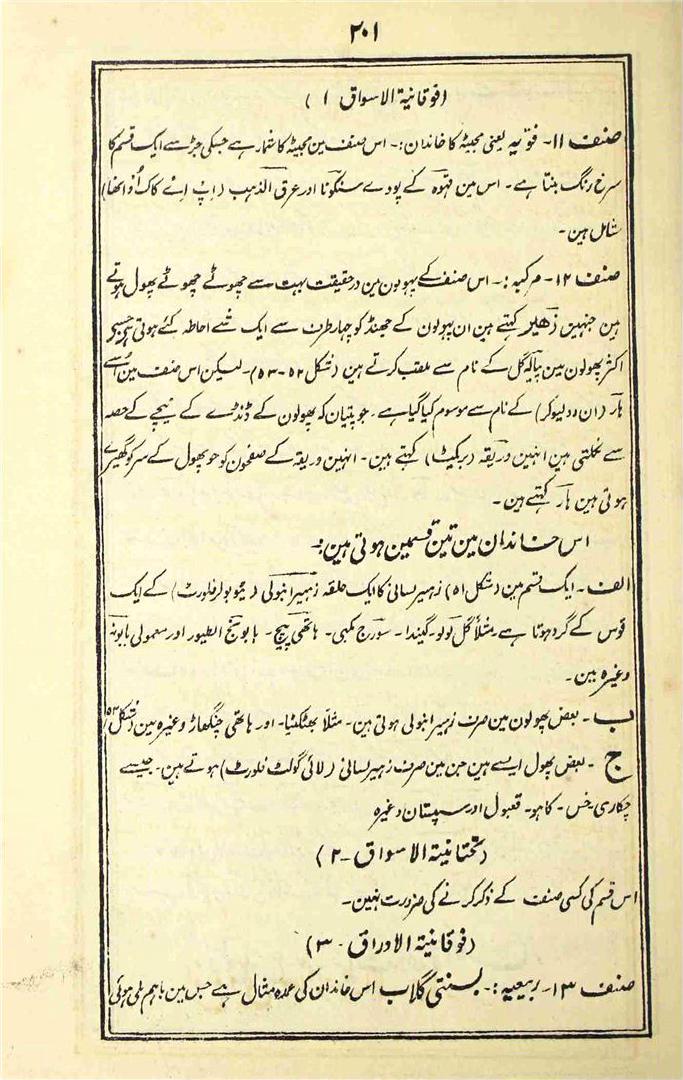 ۲۰۱
(فوقانیۃ الاسواق ۱)
صنف ۱۱۔ فوّیہ یعنی مجیٹھ کا خاندان:۔ اس صنف مین مجیٹھ کا شمار ہے جسکی جڑ سے ایک قسم کا
سرخ رنگ بنتا ہے۔ اس مین قہوہ کے پودے سنکونا اور عرق الذہب (اِپ اِے کاک اُوانھا)
شامل ہین۔
صنف ۱۲۔ مرکبہ:۔ اس صنف کے پھولون مین درحقیقت بہت سے چھوٹے چھوٹے پھول ہوتے
ہین جنہین زھیر کہتے ہین ان پھولون کے جھنڈ کو چہار طرف سے ایک شے احاطہ کئے ہوتی ہے جسے
اکثر پھولون مین پیالہ گل کے نام سے ملقب کرتے ہین (شکل ۵۲-۵۳)۔ لیکن اس صنف مین اُسے
ہار (ان وولیوکر) کے نام سے موسوم کیا گیا ہے۔ جو پتیان کہ پھولون کے ڈنڈے کے نیچے کے حصہ
سے نکلتی ہین انہین وریقہ (بریکٹ) کہتے ہین۔ انہین وریقہ کے صفحون کو جو پھول کے سر کو گھیرے
ہوتی ہین ہار کہتے ہین۔
اس خاندان مین تین قسمین ہوتی ہین:۔
الف۔ ایک قسم مین (شکل ۵۱) زہیر لسانی کا ایک حلقہ زہیر انبولی (ٹیوبولر فلورٹ) کے ایک
قوس کے گرد ہوتا ہے۔ مثلاً گل لولو۔ گیندا۔ سورج مکھی۔ ہاتھی پیچ۔ بابونج الطیور اور معمولی بابونہ
وغیرہ مین۔
ب۔ بعض پھولون مین صرف زہیر انبولی ہوتی ہین۔ مثلاً بھٹکٹیا۔ اور ہاتھی چنگھاڑ وغیرہ مین (شکل ۵۳)
ج۔ بعض پھول ایسے ہین جن مین صرف زہیر لسانی (لائی گولٹ فلورٹ) ہوتے ہین۔ جیسے
چکاری۔ خس۔ کاہو۔ قعبول اور سپستان وغیرہ
(تحتانیۃ الاسواق -۲)
اس قسم کی کسی صنف کے ذکر کرنے کی ضرورت نہین۔
(فوقانیۃ الاوراق -۳)
صنف ۱۳۔ ربیعیہ:۔ بسنتی گلاب اس خاندان کی عمدہ مثال ہے جس مین باہم ملی ہوئی